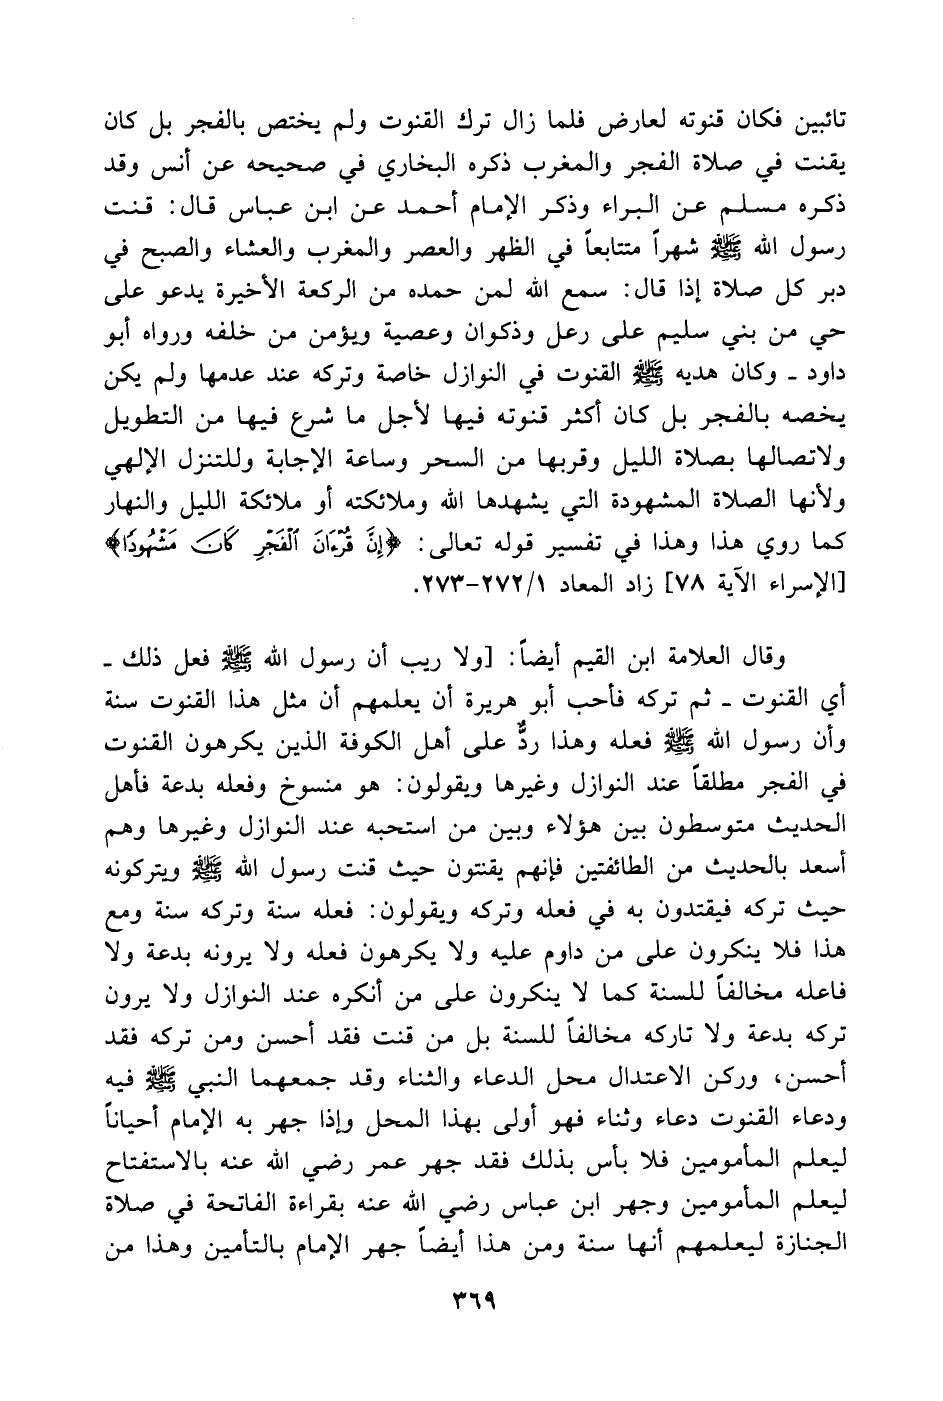 تائبين فكان قنوته لعارض فلما زال ترك القنوت ولم يختص بالفجر بل كان
يقنت في صلاة الفجر والمغرب ذكره البخاري في صحيحه عن أنس وقد
ذكره مسلم عن البراء وذكر الإمام أحمد عن ابن عباس قال: قنت
رسول الله ﷺ شهراً متتابعاً في الظهر والعصر والمغرب والعشاء والصبح في
دبر كل صلاة إذا قال: سمع الله لمن حمده من الركعة الأخيرة يدعو على
حي من بني سليم على رعل وذكوان وعصية ويؤمن من خلفه ورواه أبو
داود ـ وكان هديه ﷺ القنوت في النوازل خاصة وتركه عند عدمها ولم يكن
يخصه بالفجر بل كان أكثر قنوته فيها لأجل ما شرع فيها من التطويل
ولاتصالها بصلاة الليل وقربها من السحر وساعة الإجابة وللتنزل الإلهي
ولأنها الصلاة المشهودة التي يشهدها الله وملائكته أو ملائكة الليل والنهار
كما روي هذا وهذا في تفسير قوله تعالى: ﴿إِنَّ قُرْءَانَ ٱلْفَجْرِ كَانَ مَشْهُودًا﴾
[الإسراء الآية ٧٨] زاد المعاد ٢٧٢/١-٢٧٣.
وقال العلامة ابن القيم أيضاً: [ولا ريب أن رسول الله ﷺ فعل ذلك ـ
أي القنوت ـ ثم تركه فأحب أبو هريرة أن يعلمهم أن مثل هذا القنوت سنة
وأن رسول الله ﷺ فعله وهذا ردٌّ على أهل الكوفة الذين يكرهون القنوت
في الفجر مطلقاً عند النوازل وغيرها ويقولون: هو منسوخ وفعله بدعة فأهل
الحديث متوسطون بين هؤلاء وبين من استحبه عند النوازل وغيرها وهم
أسعد بالحديث من الطائفتين فإنهم يقنتون حيث قنت رسول الله ﷺ ويتركونه
حيث تركه فيقتدون به في فعله وتركه ويقولون: فعله سنة وتركه سنة ومع
هذا فلا ينكرون على من داوم عليه ولا يكرهون فعله ولا يرونه بدعة ولا
فاعله مخالفاً للسنة كما لا ينكرون على من أنكره عند النوازل ولا يرون
تركه بدعة ولا تاركه مخالفاً للسنة بل من قنت فقد أحسن ومن تركه فقد
أحسن، وركن الاعتدال محل الدعاء والثناء وقد جمعهما النبي ﷺ فيه
ودعاء القنوت دعاء وثناء فهو أولى بهذا المحل وإذا جهر به الإمام أحياناً
ليعلم المأمومين فلا بأس بذلك فقد جهر عمر رضي الله عنه بالاستفتاح
ليعلم المأمومين وجهر ابن عباس رضي الله عنه بقراءة الفاتحة في صلاة
الجنازة ليعلمهم أنها سنة ومن هذا أيضاً جهر الإمام بالتأمين وهذا من
٣٦٩